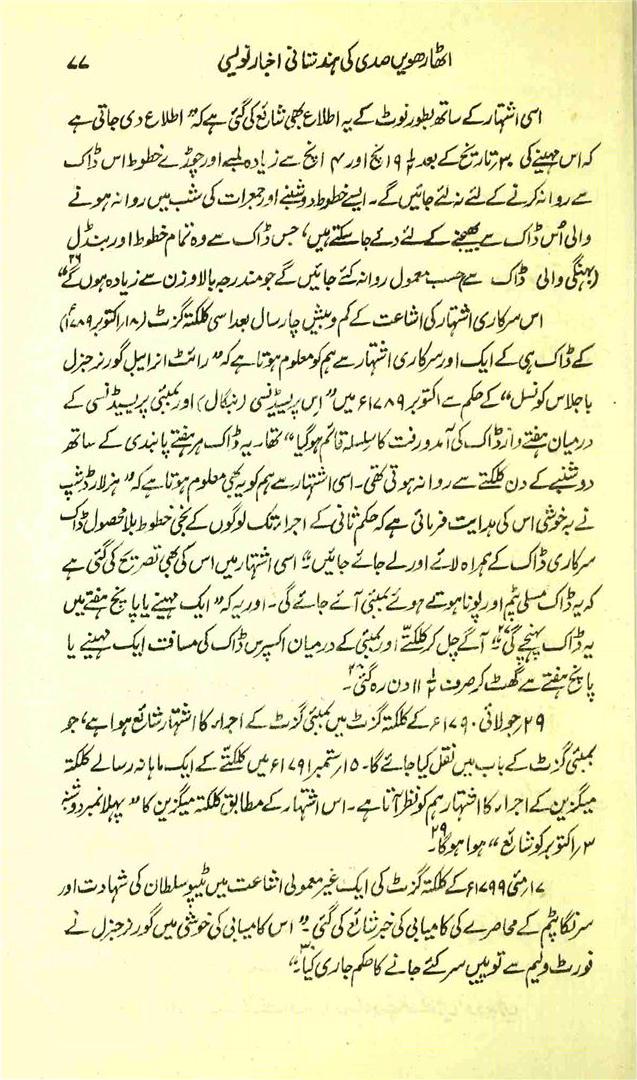 اٹھارھویں صدی کی ہندستانی اخبار نویسی ۷۷
اسی اشتہار کے ساتھ بطور نوٹ کے یہ اطلاع بھی شائع کی گئی ہے کہ ”اطلاع دی جاتی ہے
کہ اس مہینے کی ۳۰ تاریخ کے بعد ۹ ۱/۲ انچ اور ۴ انچ سے زیادہ لمبے اور چوڑے خطوط اس ڈاک
سے روانہ کرنے کے لئے نہ لئے جائیں گے۔ ایسے خطوط دوشنبے اور جمعرات کی شب میں روانہ ہونے
والی اُس ڈاک سے بھیجنے کے لئے دئے جا سکتے ہیں، جس ڈاک سے وہ تمام خطوط اور بنڈل
(بہنگی والی ڈاک سے) حسب معمول روانہ کئے جائیں گے جو مندرجہ بالا وزن سے زیادہ ہوں گے“ ۲۶
اس سرکاری اشتہار کی اشاعت کے کم و بیش چار سال بعد اسی کلکتہ گزٹ (۸ار اکتوبر ۱۷۸۹ء)
کے ڈاک ہی کے ایک اور سرکاری اشتہار سے ہم کو معلوم ہوتا ہے کہ ”رائٹ انرایبل گورنر جنرل
باجلاس کونسل“ کے حکم سے اکتوبر ۱۷۸۹ء میں ”اِس پریسیڈنسی (بنگال) اور بمبئی پریسیڈنسی کے
درمیان ہفتے وار ڈاک کی آمد و رفت کا سلسلہ قائم ہو گیا“ تھا۔ یہ ڈاک ہر ہفتے پابندی کے ساتھ
دوشنبے کے دن کلکتے سے روانہ ہوتی تھی۔ اسی اشتہار سے ہم کو یہ بھی معلوم ہوتا ہے کہ ”ہز لارڈشپ
نے بہ خوشی اس کی ہدایت فرمائی ہے کہ حکم ثانی کے اجراء تک لوگوں کے نجی خطوط بلا محصول ڈاک
سرکاری ڈاک کے ہمراہ لائے اور لے جائے جائیں“۔ اسی اشتہار میں اس کی بھی تصریح کی گئی ہے
کہ یہ ڈاک مسلی پٹم اور پونا ہوتے ہوئے بمبئی آئے جائے گی۔ اور یہ کہ ”ایک مہینے یا پانچ ہفتے میں
یہ ڈاک پہنچے گی“ ۲۷۔ آگے چل کر کلکتے اور بمبئی کے درمیان اکسپرس ڈاک کی مسافت ایک مہینے یا
پانچ ہفتے سے گھٹ کر صرف ۱۱ ۱/۲ دن رہ گئی ۲۸۔
۲۹ر جولائی ۱۷۹۰ء کے کلکتہ گزٹ میں بمبئی گزٹ کے اجراء کا اشتہار شائع ہوا ہے، جو
بمبئی گزٹ کے باب میں نقل کیا جائے گا۔ ۱۵ر ستمبر ۱۷۹۱ء میں کلکتے کے ایک ماہانہ رسالے کلکتہ
میگزین کے اجراء کا اشتہار ہم کو نظر آتا ہے۔ اس اشتہار کے مطابق کلکتہ میگزین کا ”پہلا نمبر دوشنبہ
۳ر اکتوبر کو شائع“ ہوا ہوگا ۲۹۔
۱۷ر مئی ۱۷۹۹ء کے کلکتہ گزٹ کی ایک غیر معمولی اشاعت میں ٹیپو سلطان کی شہادت اور
سرنگاپٹم کے محاصرے کی کامیابی کی خبر شائع کی گئی۔ ”اس کامیابی کی خوشی میں گورنر جنرل نے
فورٹ ولیم سے توپیں سر کئے جانے کا حکم جاری کیا“۔